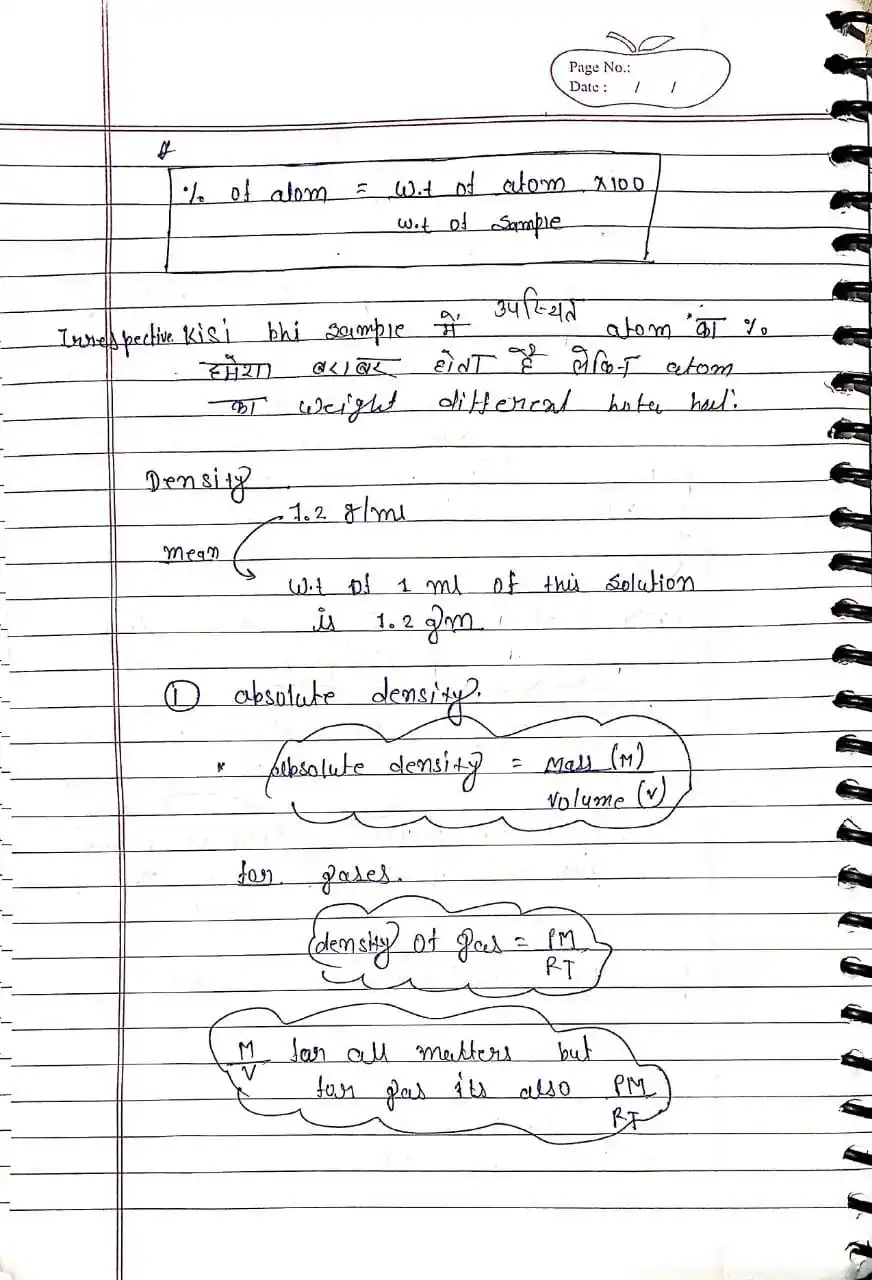 Page No.:
Date : / /
% of atom = w.t of atom x100
w.t of sample
Irrespective Kisi bhi sample में उपस्थित atom का %
हमेशा बराबर होता है लेकिन atom
का weight different hota hai.
Density
1.2 g/ml
mean
w.t of 1 ml of this solution
is 1.2 gm
① absolute density.
* absolute density = Mass (M)
Volume (V)
for gases.
density of gas = PM
RT
M for all matters but
V for gas its also PM
RT